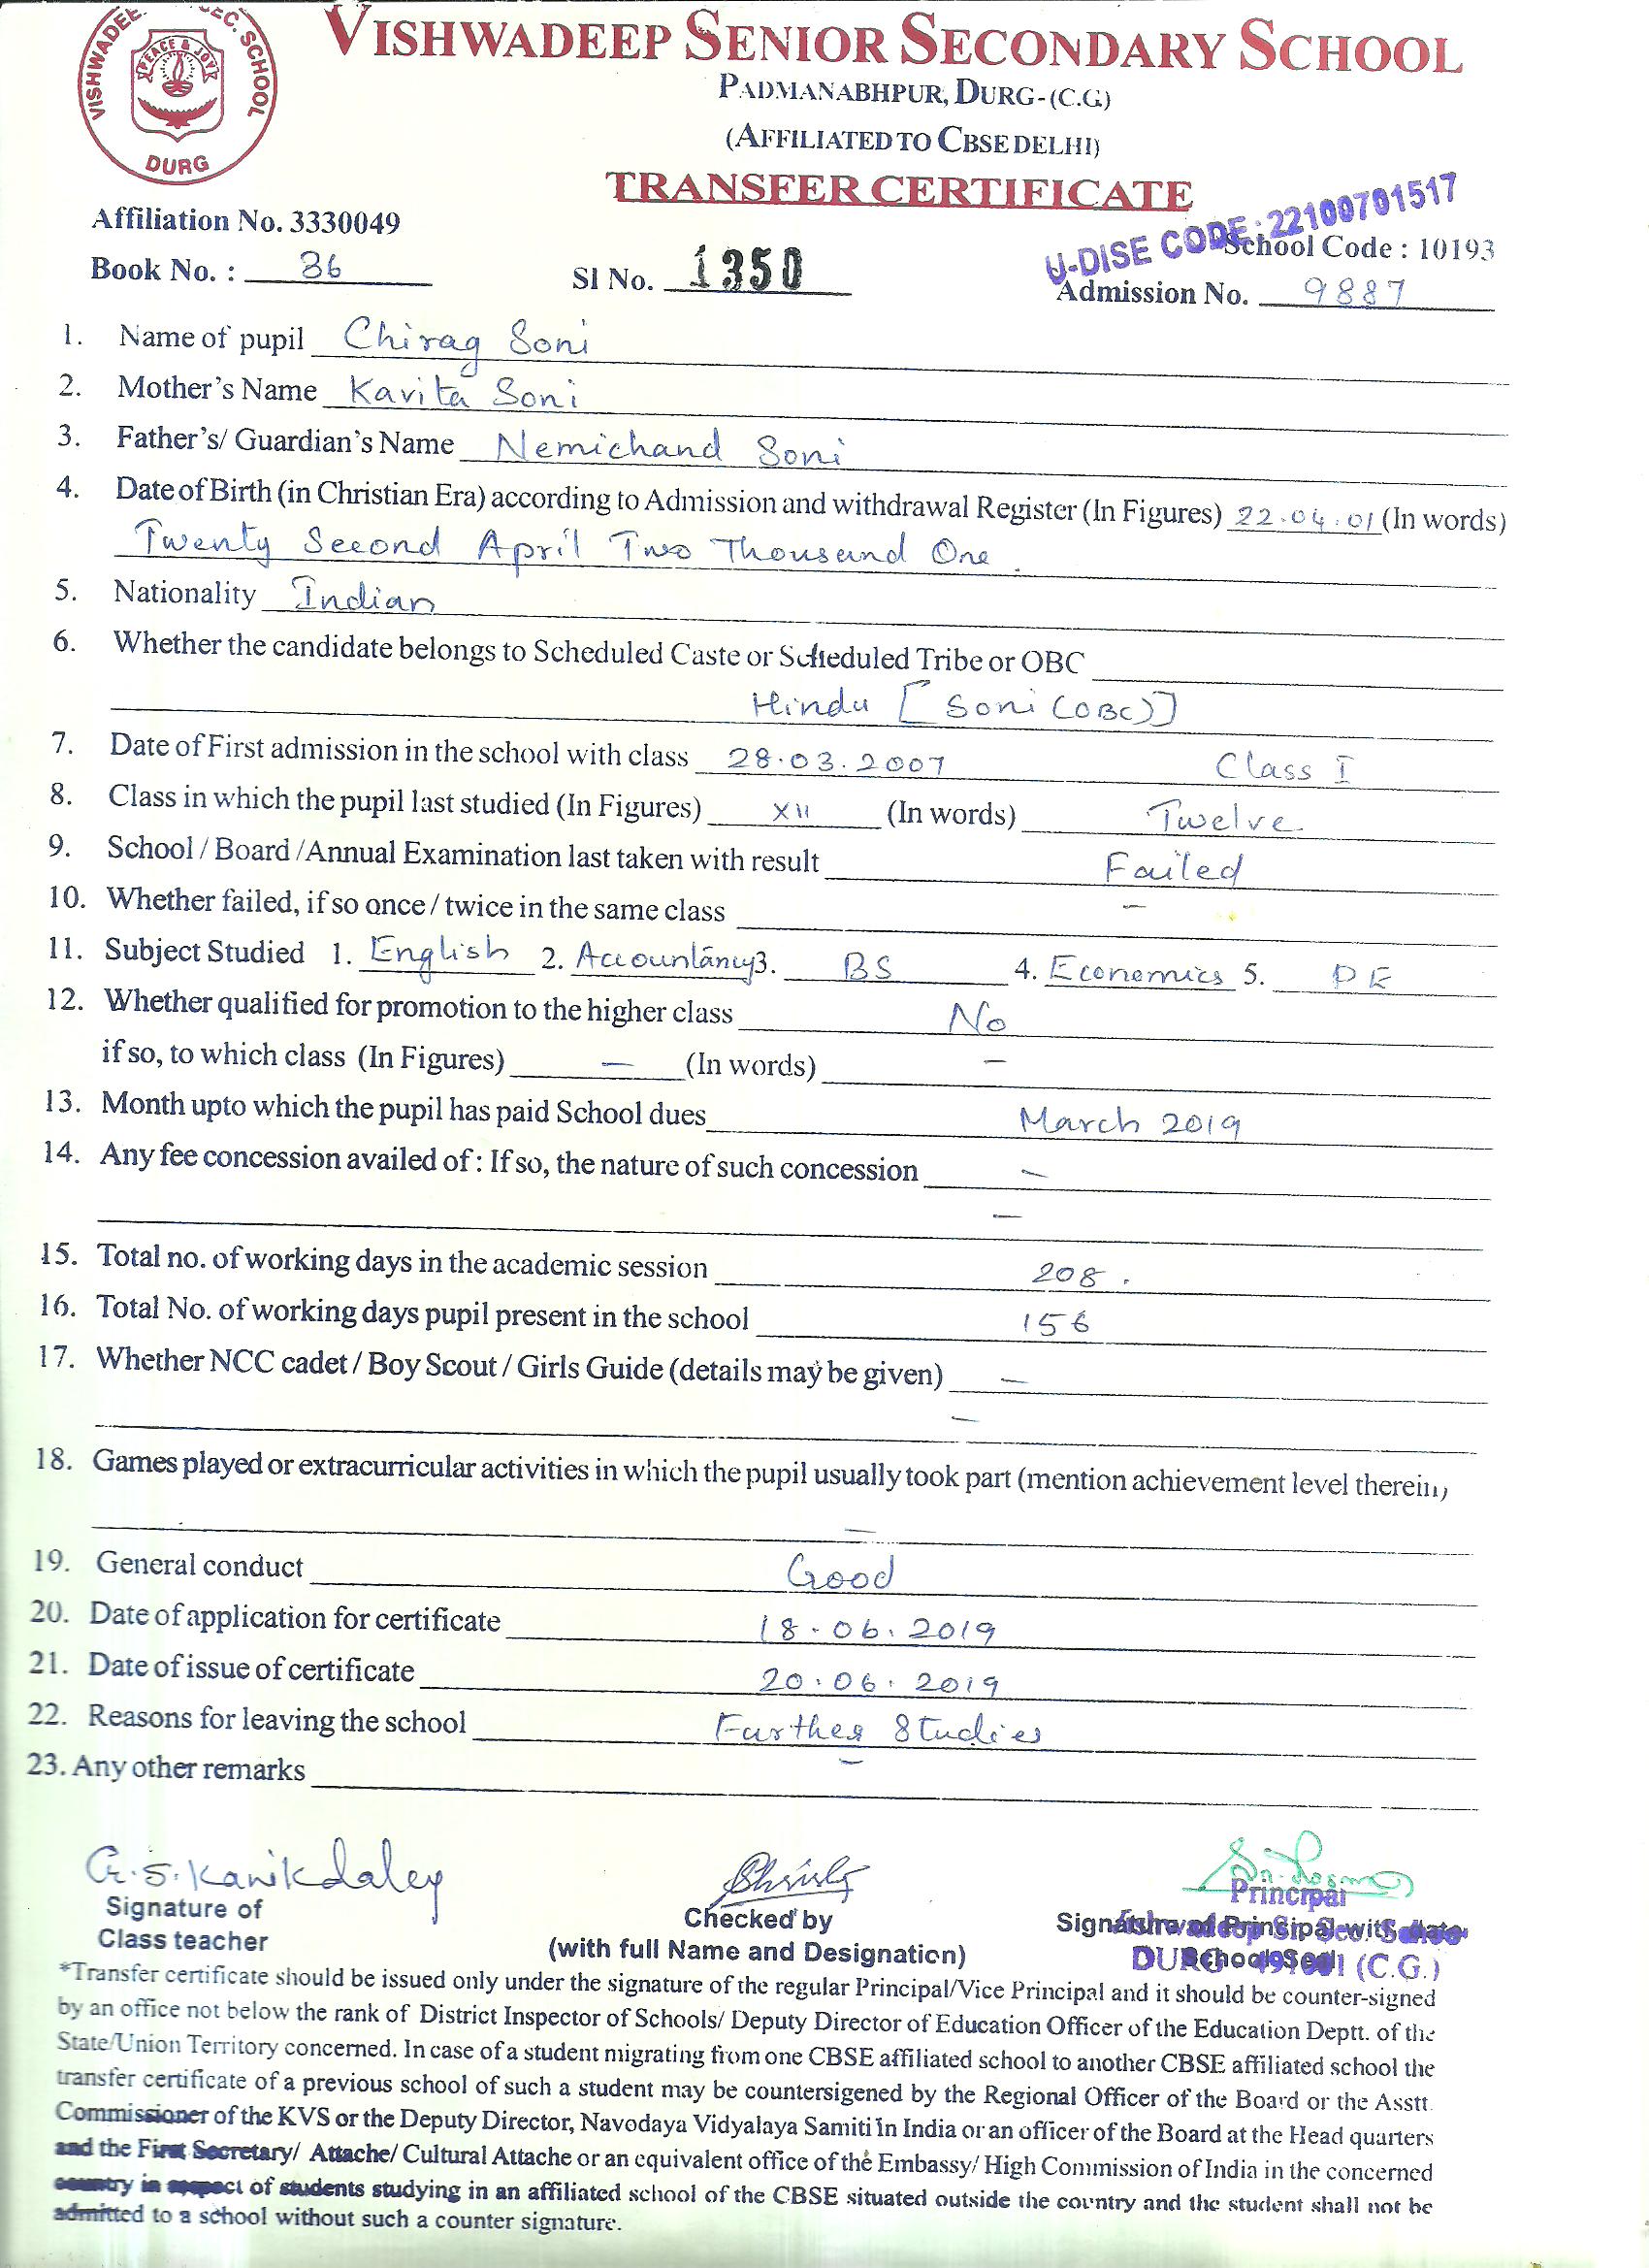 VISHWADEEP SENIOR SECONDARY SCHOOL
VISHWADEEP SEC. SCHOOL
PEACE & JOY
DURG
PADMANABHPUR, DURG-(C.G.)
(AFFILIATED TO CBSE DELHI)
TRANSFER CERTIFICATE
U-DISE CODE:22100701517
Affiliation No. 3330049 School Code : 10193
Book No. : 36 Sl No. 1350 Admission No. 9887
1. Name of pupil Chirag Soni
2. Mother's Name Kavita Soni
3. Father's/ Guardian's Name Nemichand Soni
4. Date of Birth (in Christian Era) according to Admission and withdrawal Register (In Figures) 22.04.01 (In words)
Twenty Second April Two Thousand One.
5. Nationality Indian
6. Whether the candidate belongs to Scheduled Caste or Scheduled Tribe or OBC
Hindu [Soni (OBC)]
7. Date of First admission in the school with class 28.03.2007 Class I
8. Class in which the pupil last studied (In Figures) XII (In words) Twelve
9. School / Board /Annual Examination last taken with result Failed
10. Whether failed, if so once / twice in the same class –
11. Subject Studied 1. English 2. Accountancy 3. BS 4. Economics 5. PE
12. Whether qualified for promotion to the higher class No
if so, to which class (In Figures) – (In words) –
13. Month upto which the pupil has paid School dues March 2019
14. Any fee concession availed of : If so, the nature of such concession –
–
15. Total no. of working days in the academic session 208.
16. Total No. of working days pupil present in the school 156
17. Whether NCC cadet / Boy Scout / Girls Guide (details may be given) –
–
18. Games played or extracurricular activities in which the pupil usually took part (mention achievement level therein)
–
19. General conduct Good
20. Date of application for certificate 18.06.2019
21. Date of issue of certificate 20.06.2019
22. Reasons for leaving the school Further Studies
23. Any other remarks –
Principal
Signature of Checked by Signature of Principal with date
Class teacher (with full Name and Designation) School Seal
DURG 491001 (C.G.)
*Transfer certificate should be issued only under the signature of the regular Principal/Vice Principal and it should be counter-signed
by an office not below the rank of District Inspector of Schools/ Deputy Director of Education Officer of the Education Deptt. of the
State/Union Territory concerned. In case of a student migrating from one CBSE affiliated school to another CBSE affiliated school the
transfer certificate of a previous school of such a student may be countersigened by the Regional Officer of the Board or the Asstt.
Commissioner of the KVS or the Deputy Director, Navodaya Vidyalaya Samiti in India or an officer of the Board at the Head quarters
and the First Secretary/ Attache/ Cultural Attache or an equivalent office of the Embassy/ High Commission of India in the concerned
country in respect of students studying in an affiliated school of the CBSE situated outside the country and the student shall not be
admitted to a school without such a counter signature.